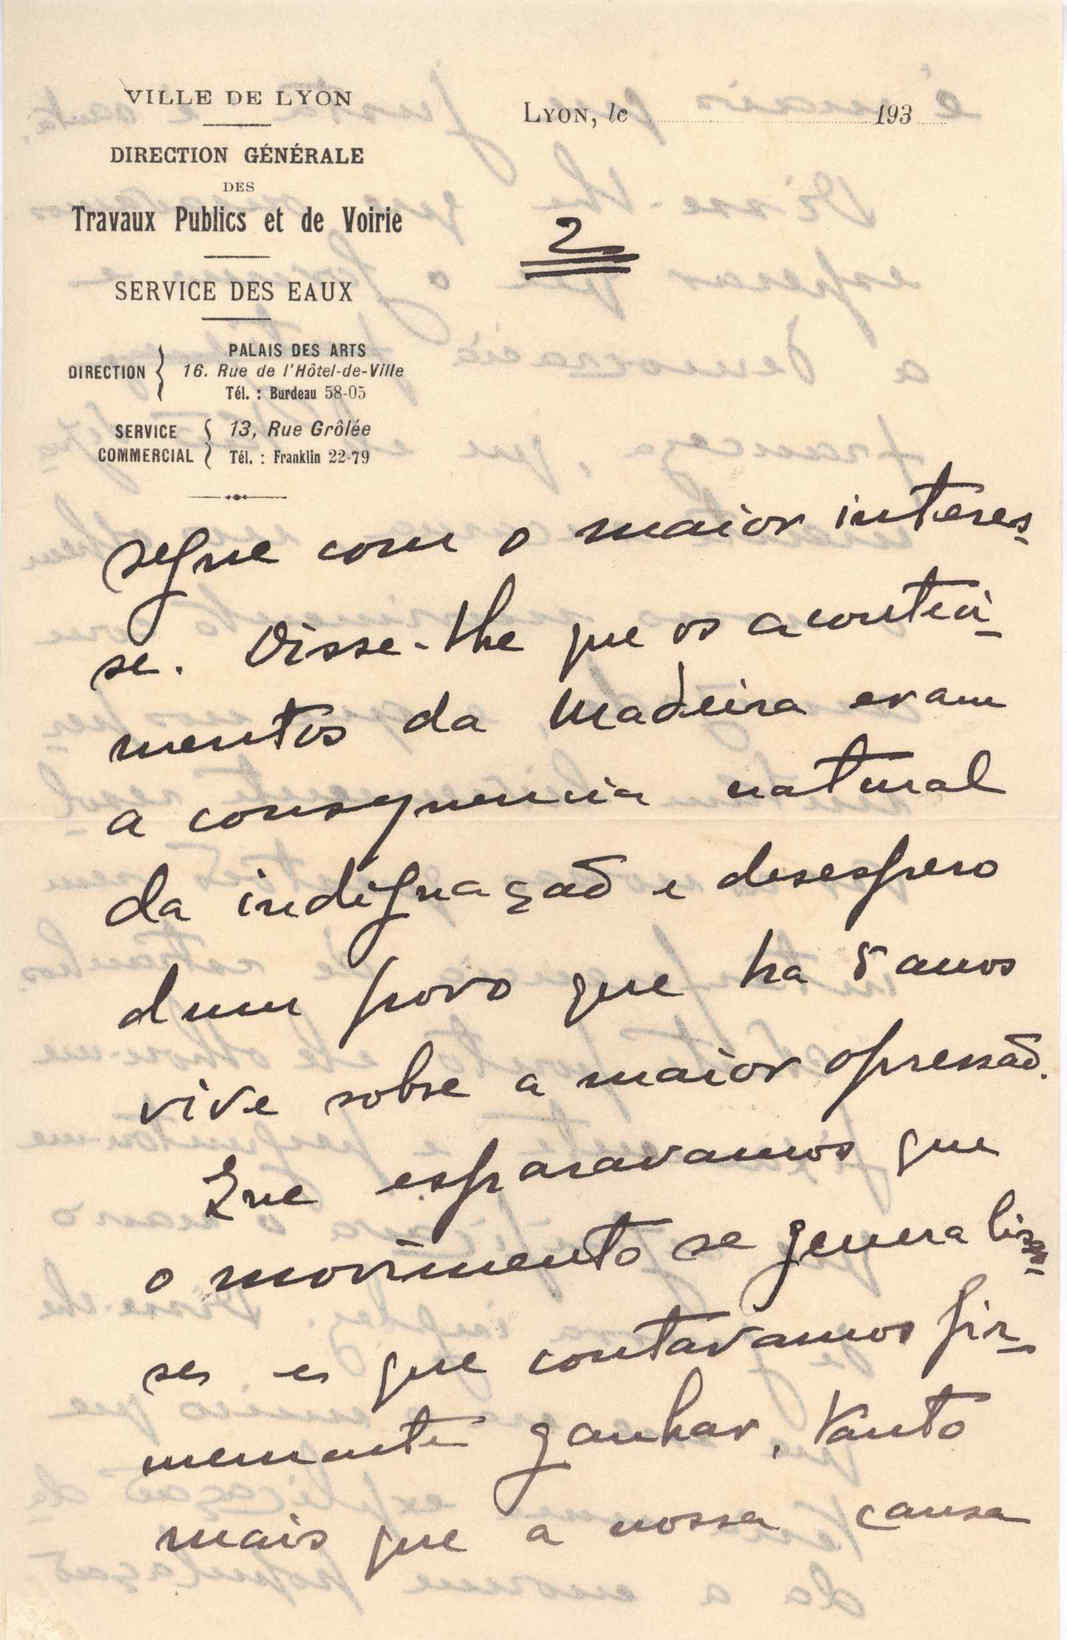 VILLE DE LYON
DIRECTION GÉNÉRALE
DES
Travaux Publics et de Voirie
SERVICE DES EAUX
DIRECTION { PALAIS DES ARTS
16. Rue de l'Hôtel-de-Ville
Tél. : Burdeau 58-05
SERVICE COMMERCIAL { 13, Rue Grôlée
Tél. : Franklin 22-79
LYON, le 193
2
segue com o maior interes-
se. Disse-lhe que os aconteci-
mentos da Madeira eram
a consequencia natural
da indignação e desespero
dum povo que ha 5 anos
vive sobre a maior opressão.
Que esparavamos que
o movimento se generalizas-
se e que contavamos fir-
memente ganhar. Tanto
mais que a nossa causa